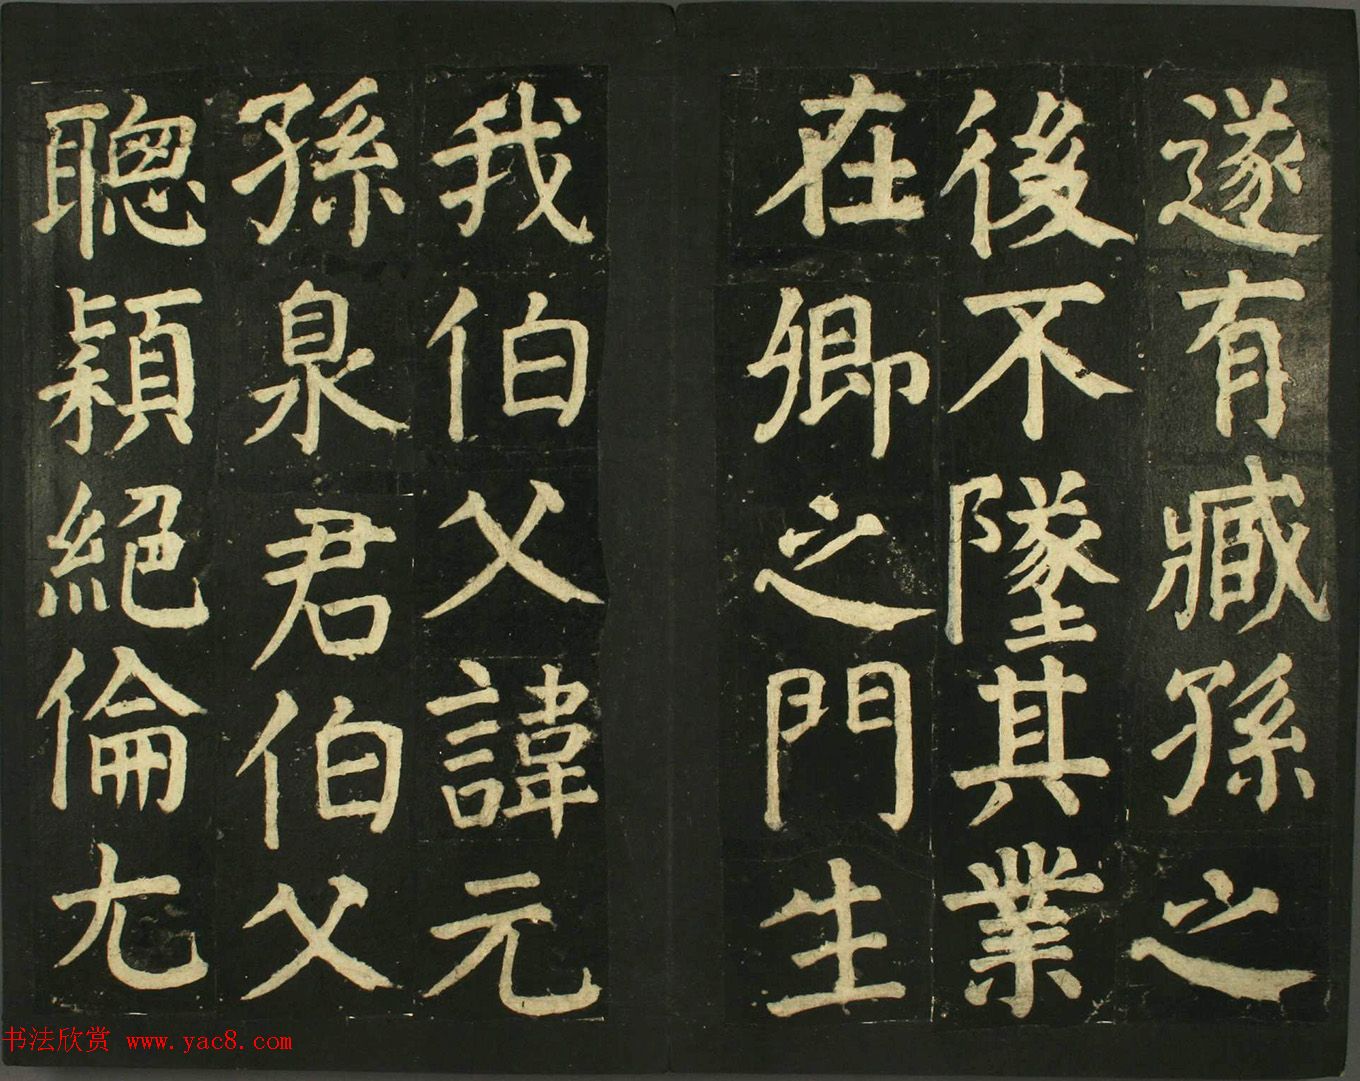 遂有臧孫之
後不墜其業
在卿之門生
我伯父諱元
孫泉君伯父
聰穎絕倫尢
书法欣赏 www.yac8.com